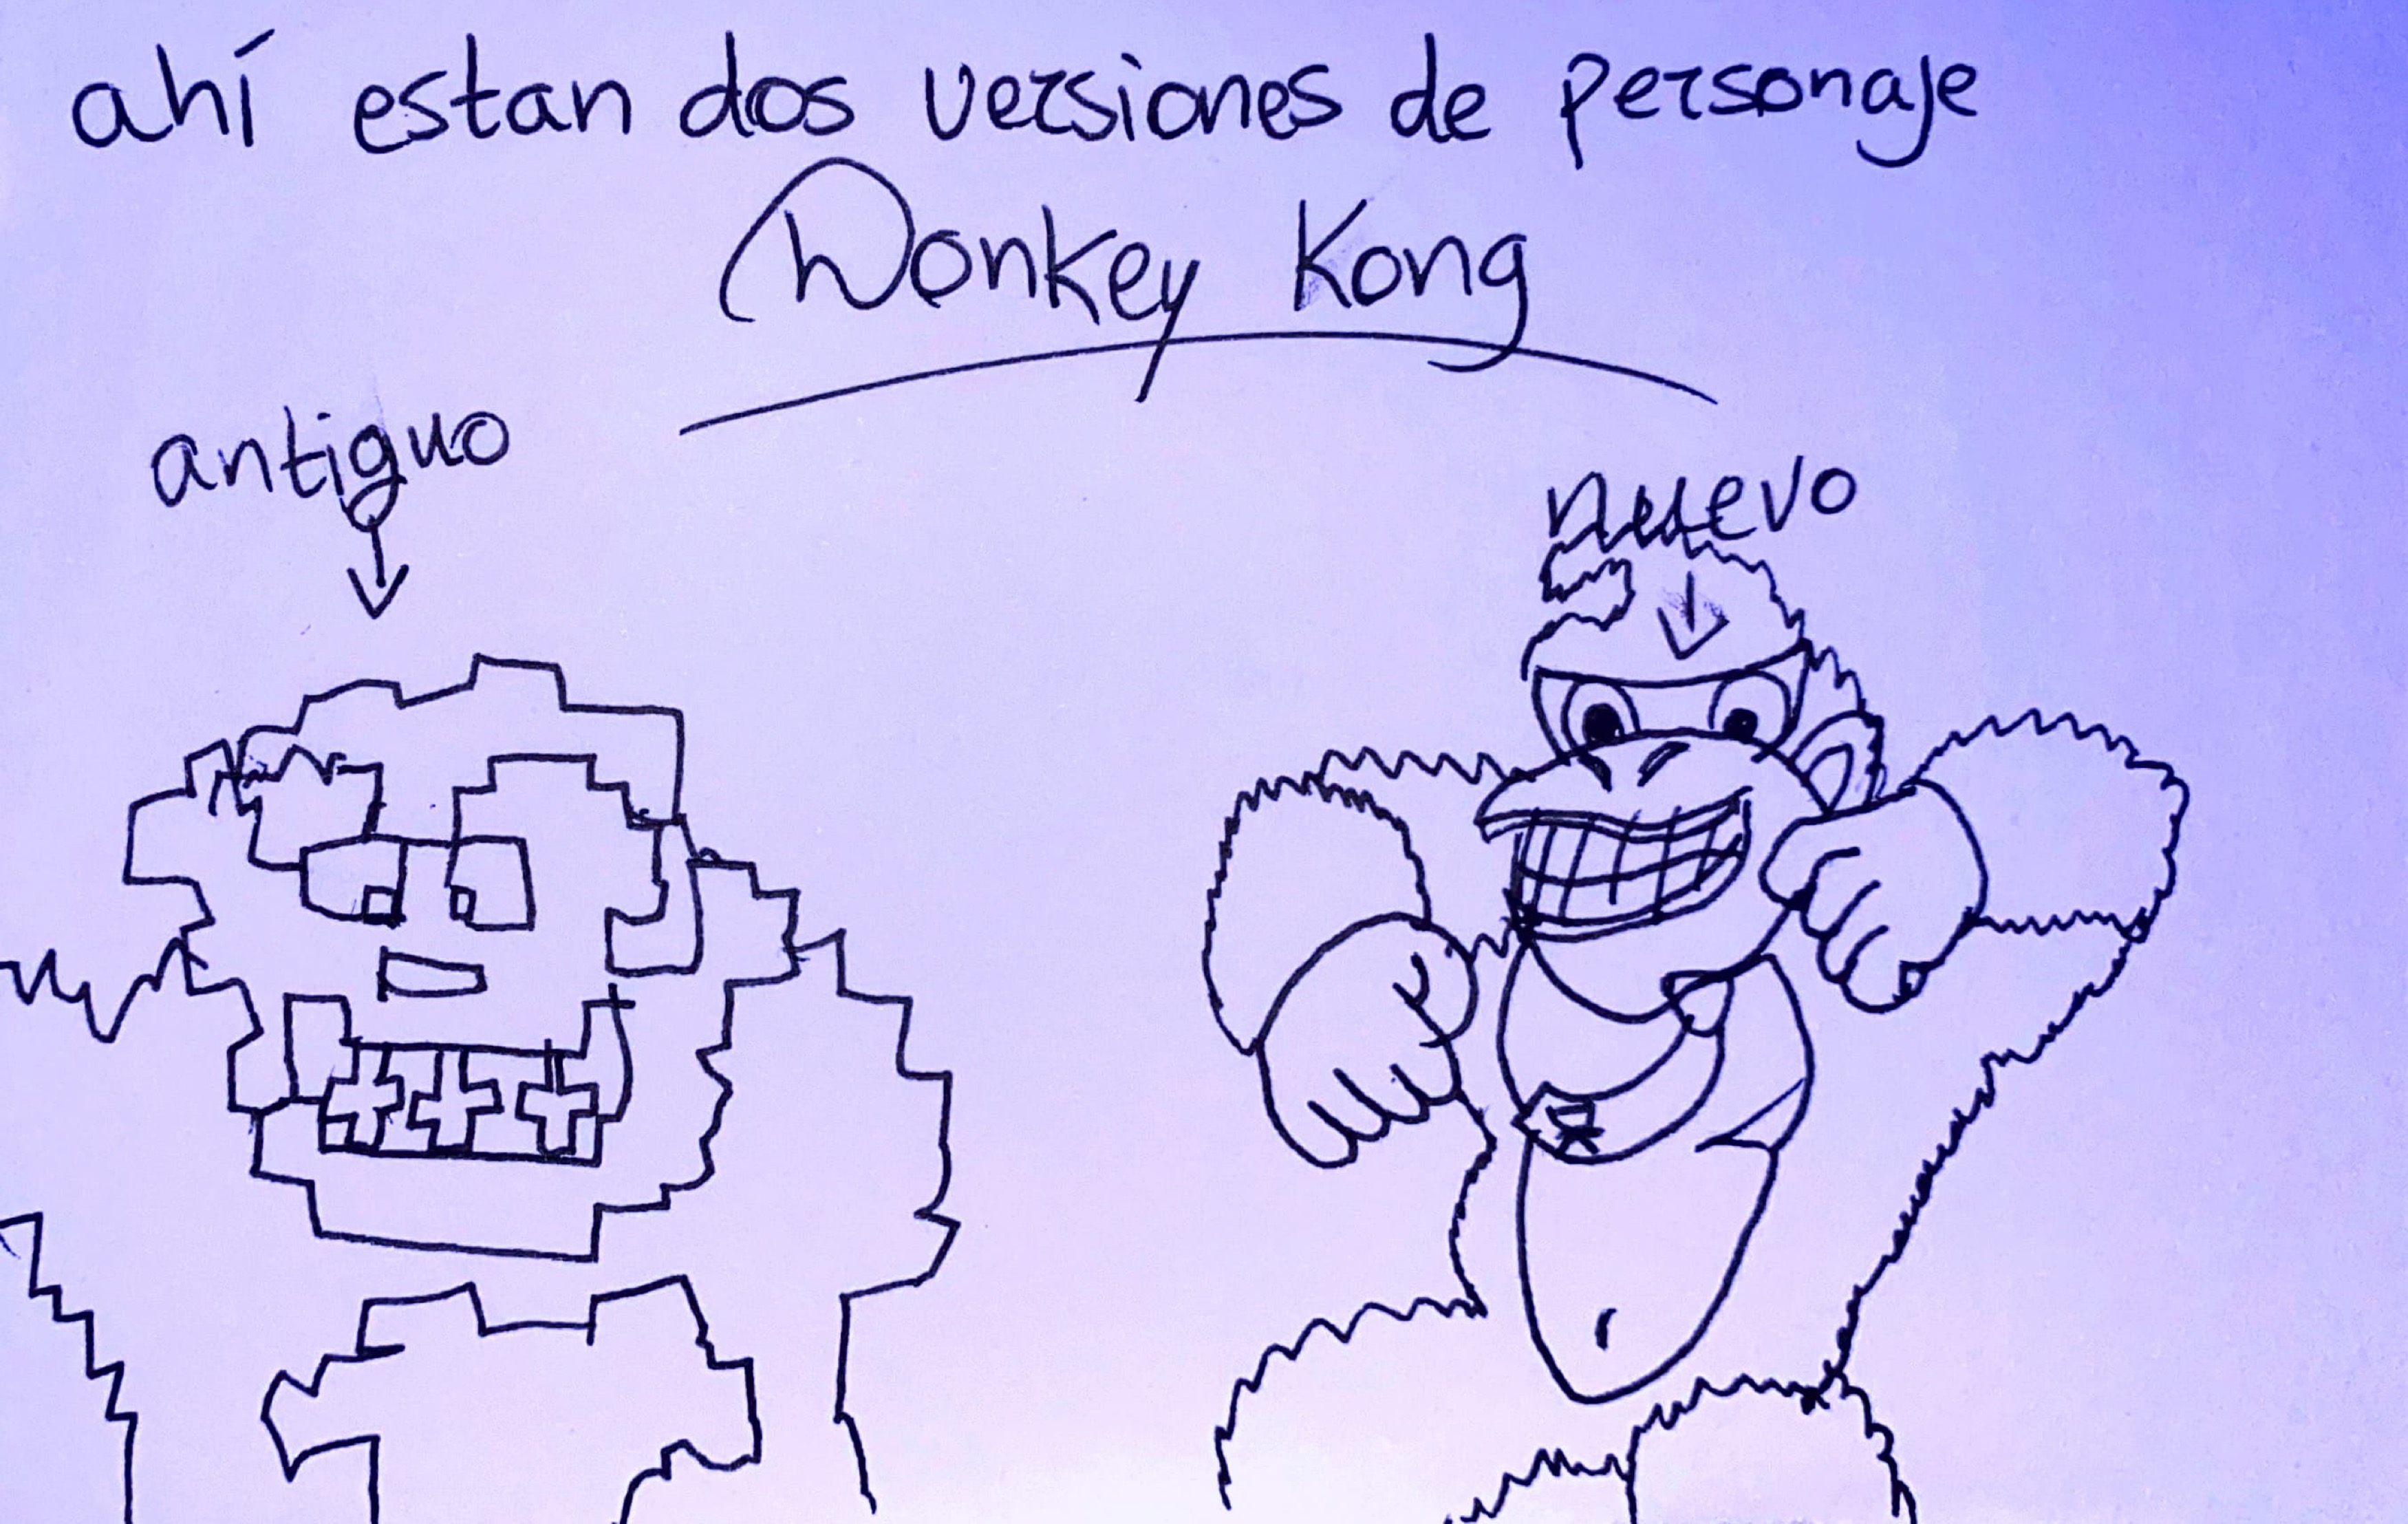 ahí estan dos versiones de personaje
Donkey Kong
antiguo
nuevo